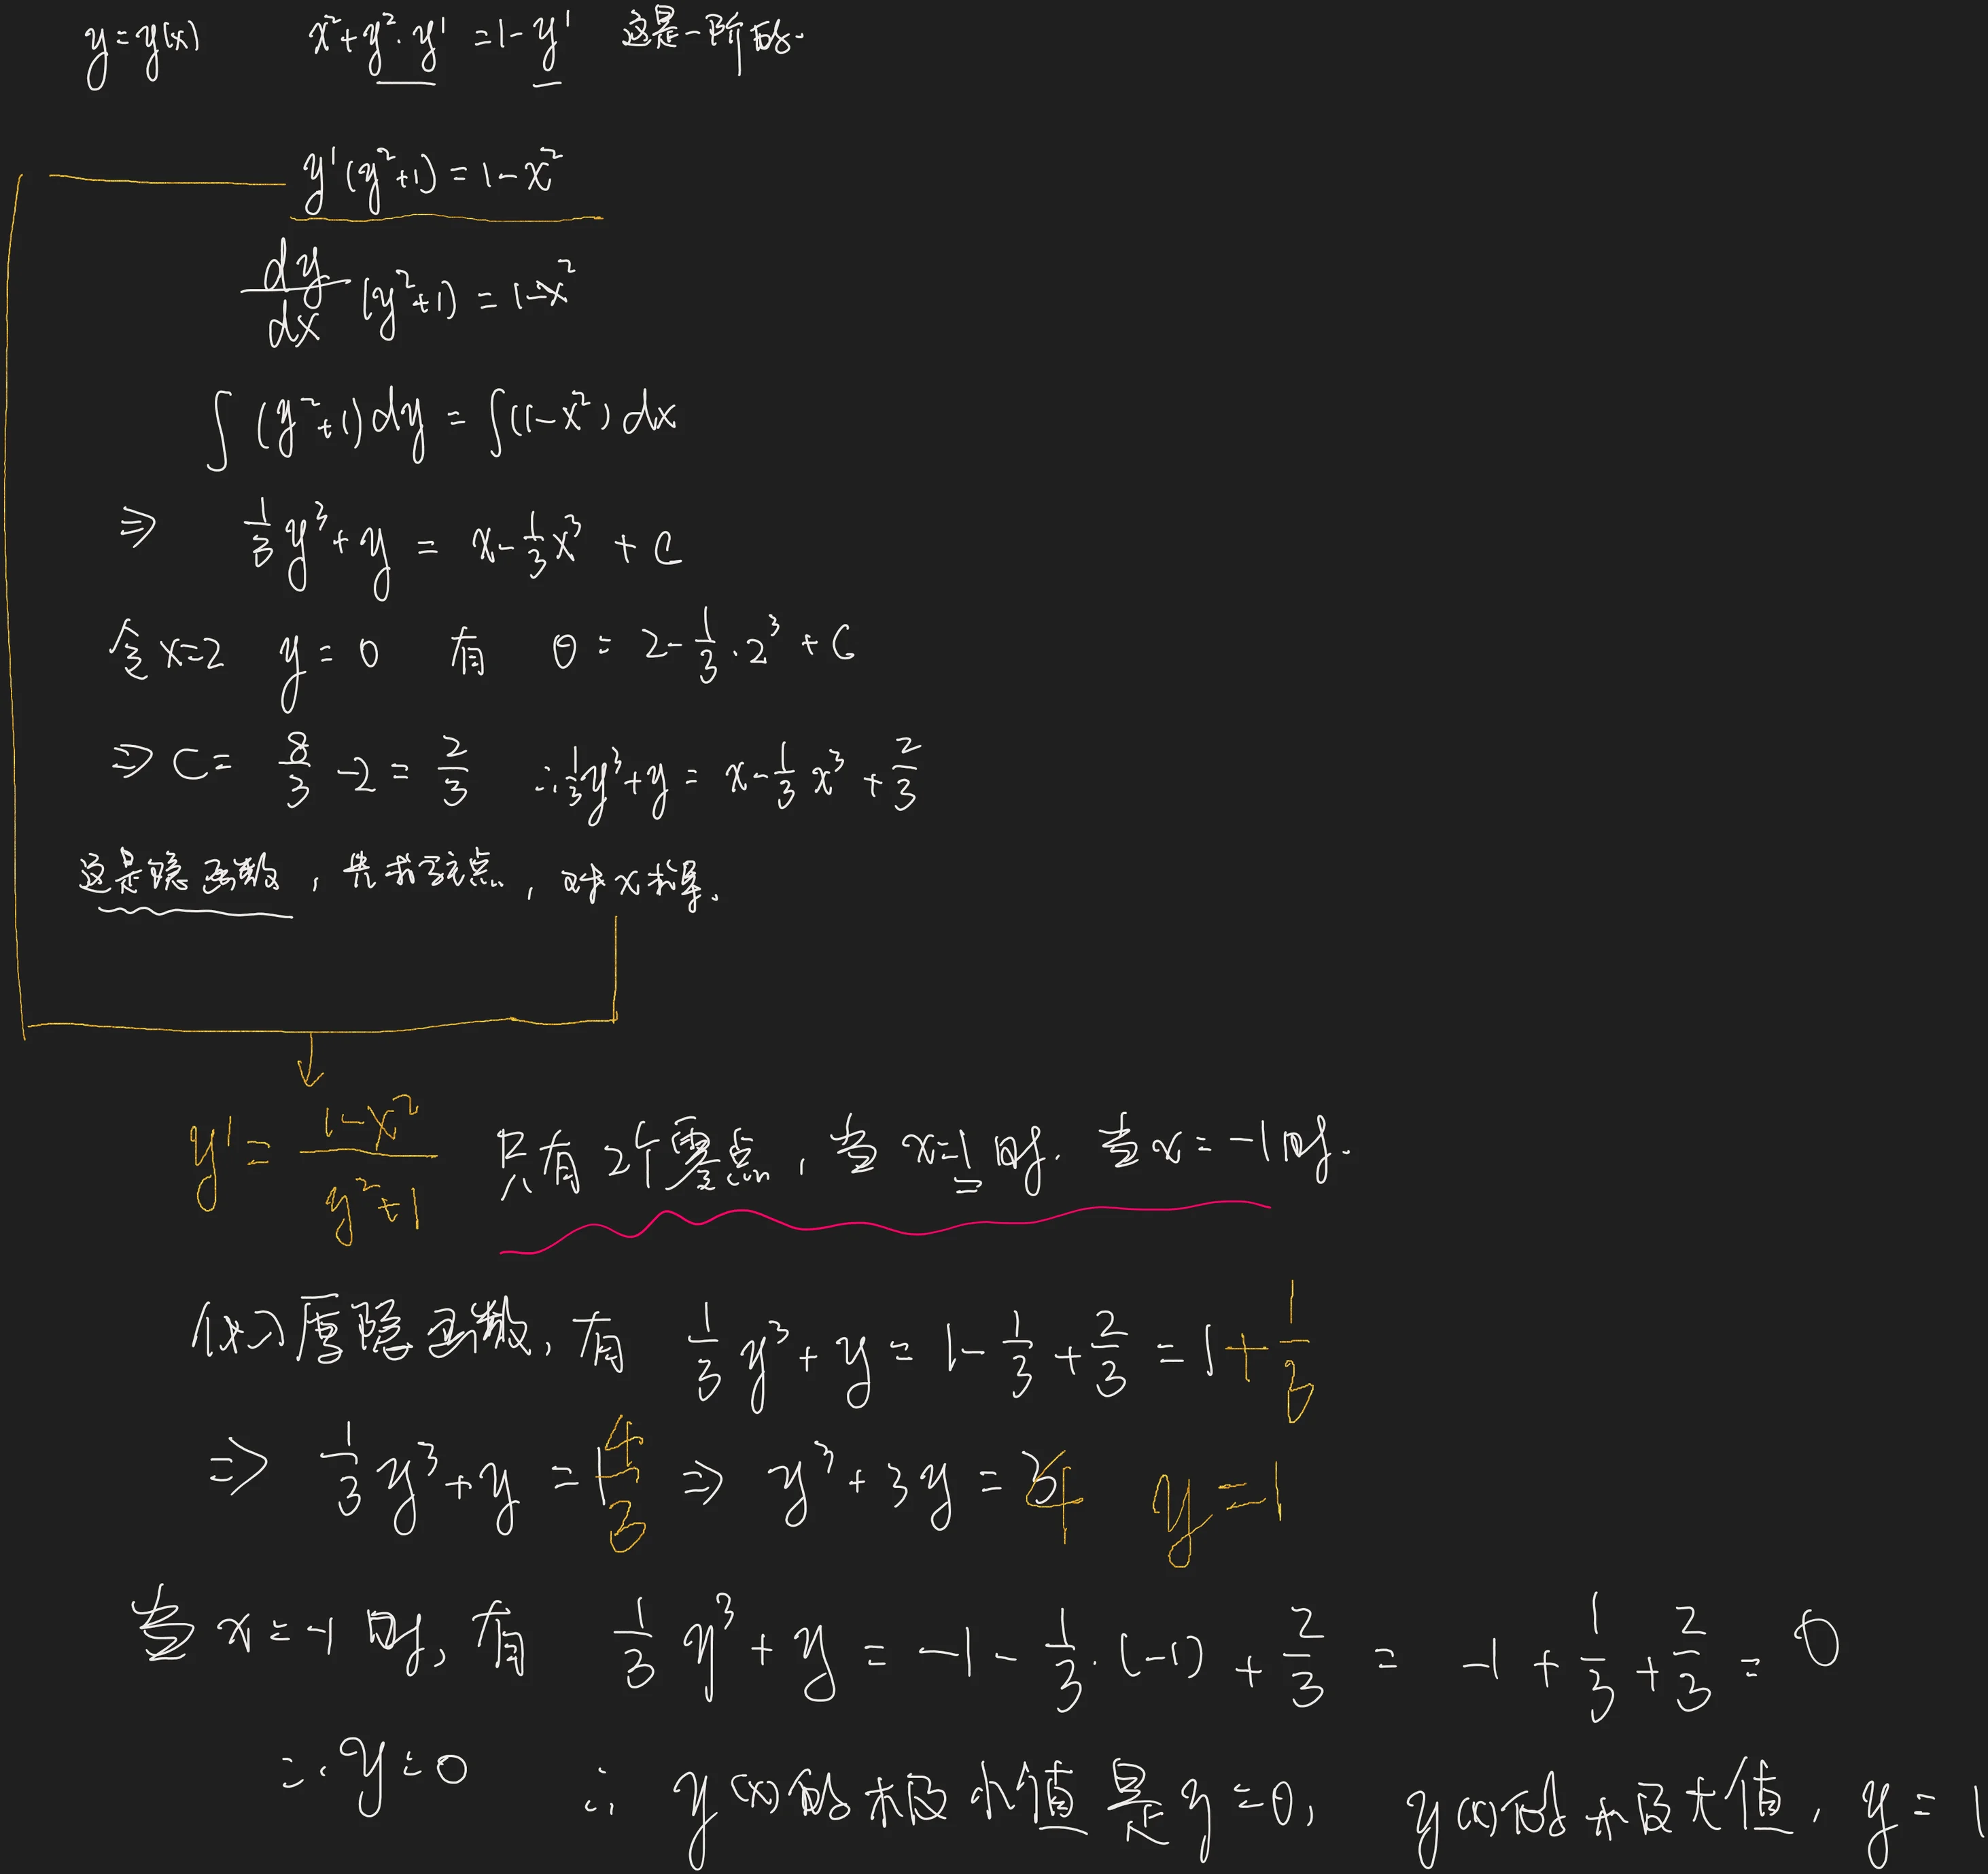 y=y(x) x²+y²·y'=1-y' 这是一阶的.
y'(y²+1)=1-x²
dy/dx (y²+1)=1-x²
∫(y²+1)dy=∫(1-x²)dx
⇒ 1/3 y³+y=x-1/3 x³+C
令x=2 y=0 有 0=2-1/3·2³+C
⇒ C=8/3-2=2/3 ∴1/3 y³+y=x-1/3 x³+2/3
这是隐函数, 求, 对x求导.
y'=(1-x²)/(y²+1) 只有2个零点, 当x=1时. 当x=-1时.
代入原隐函数, 有 1/3 y³+y=1-1/3+2/3=1+1/3
⇒ 1/3 y³+y=4/3 ⇒ y³+3y=4 y=1
当x=-1时, 有 1/3 y³+y=-1-1/3·(-1)+2/3=-1+1/3+2/3=0
∴y=0 ∴y(x)的极小值是y=0, y(x)的极大值, y=1